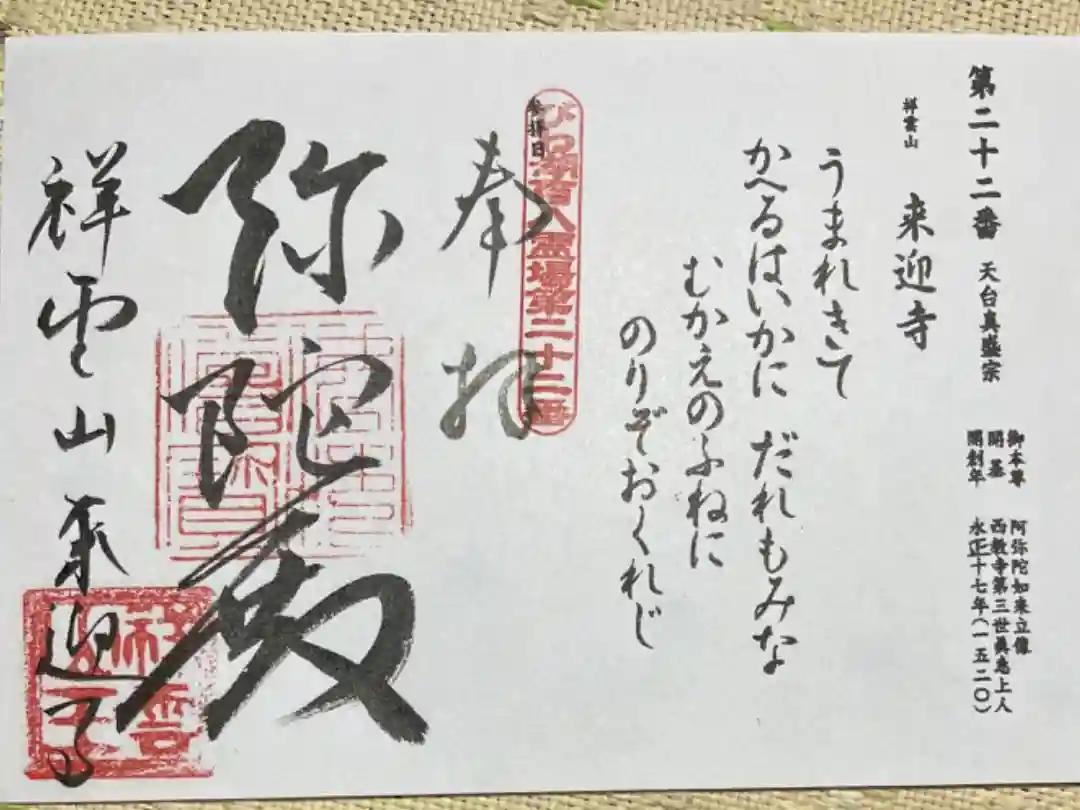 第二十二番 天台真盛宗
御本尊 阿弥陀如来立像
開基 西教寺第三世眞恵上人
開創年 永正十七年(一五二〇)
祥雲山 来迎寺
うまれきて
かへるはいかに だれもみな
むかえのふねに
のりぞおくれじ
参拝日
びわ湖百八霊場第二十二番
奉拝
弥陀殿
祥雲山来迎寺